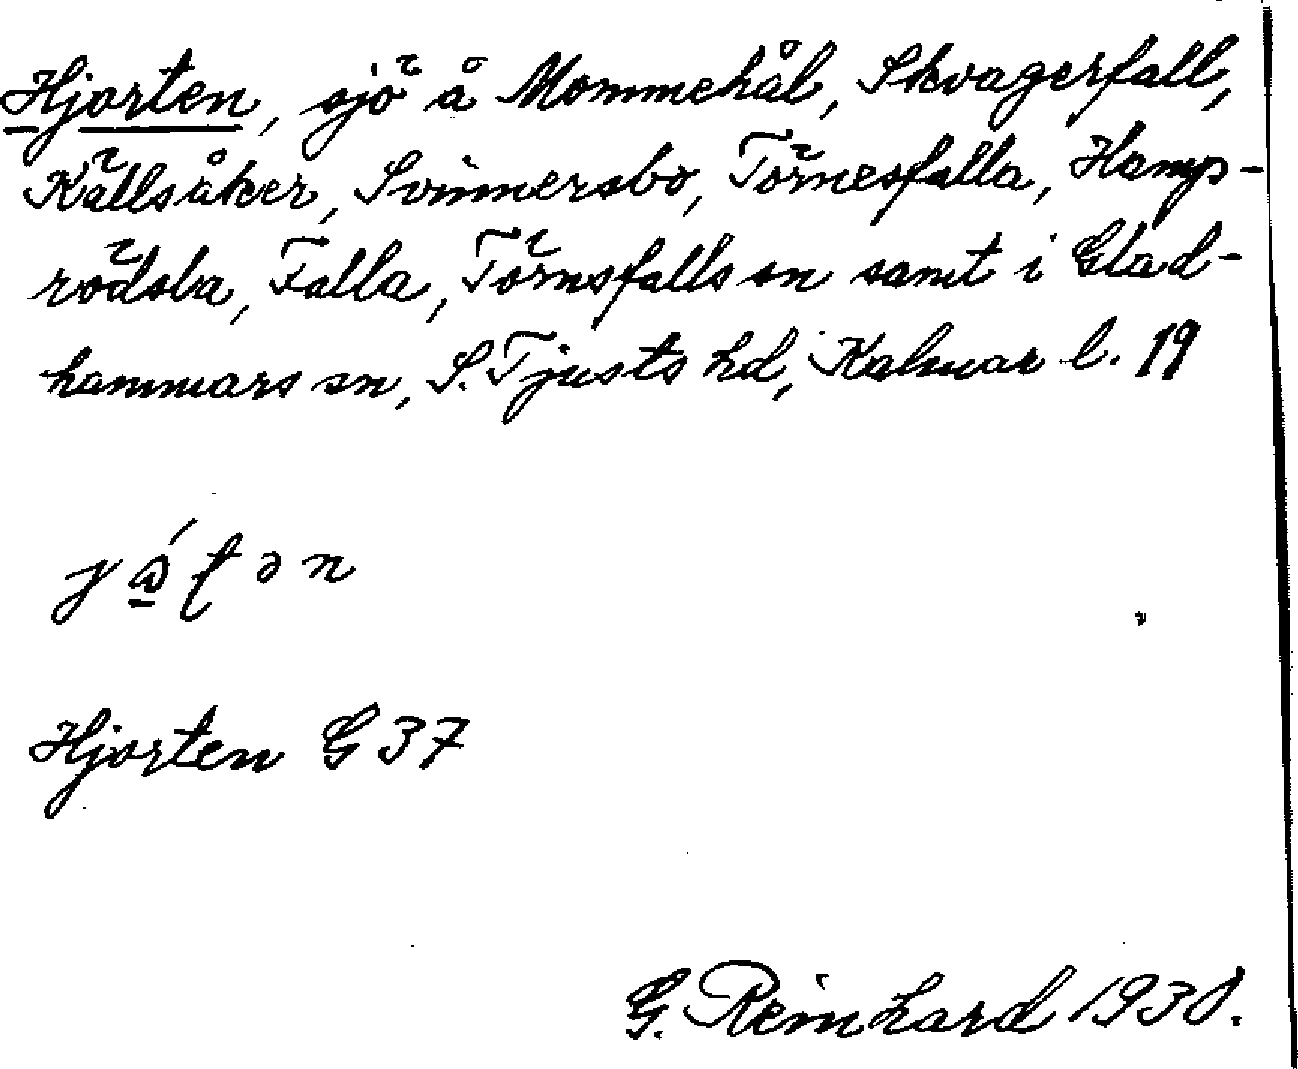 Hjorten, sjö å Mommehål, Skvagerfall,
Källsåker, Svinnersbo, Törnesfalla, Hamp-
rödsla, Falla, Törnsfalls sn samt i Glad-
hammars sn, S. Tjusts hd, Kalmar l. 19
Hjorten G 37
G. Reinhard 1938.